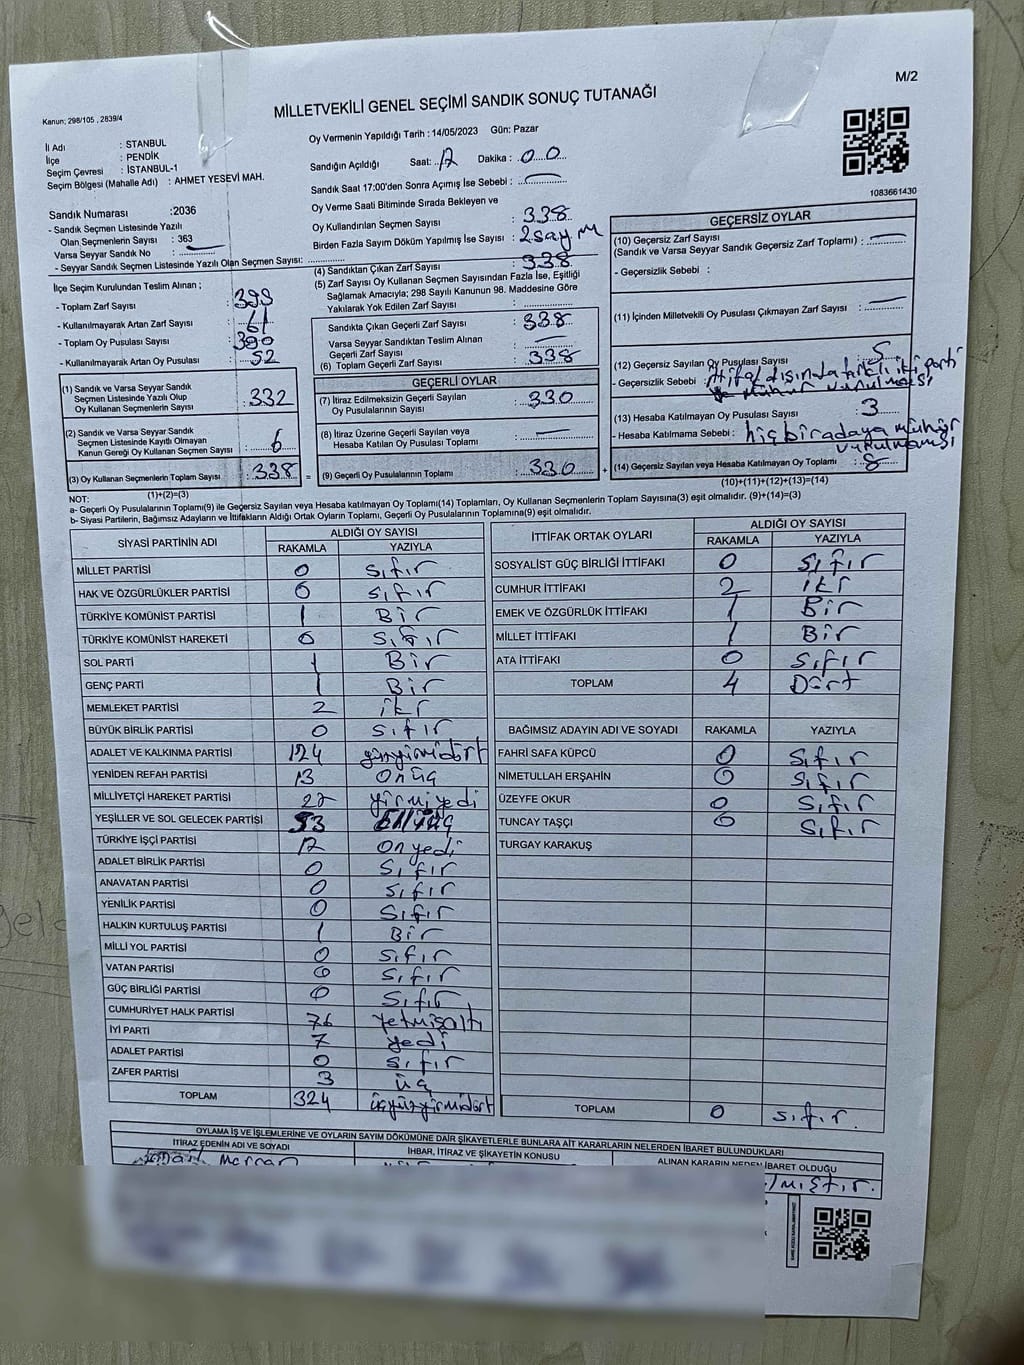 M/2
MİLLETVEKİLİ GENEL SEÇİMİ SANDIK SONUÇ TUTANAĞI
Kanun; 298/105 , 2839/4
İl Adı : STANBUL
İlçe : PENDİK
Seçim Çevresi : İSTANBUL-1
Seçim Bölgesi (Mahalle Adı) : AHMET YESEVİ MAH.
Oy Vermenin Yapıldığı Tarih : 14/05/2023 Gün: Pazar
Sandığın Açıldığı Saat: 17 Dakika : 00
Sandık Saat 17:00'den Sonra Açımış İse Sebebi :
Oy Verme Saati Bitiminde Sırada Bekleyen ve
Oy Kullandırılan Seçmen Sayısı : 338
Birden Fazla Sayım Döküm Yapılmış İse Sayısı : 2 sayım
1083661430
Sandık Numarası :2036
- Sandık Seçmen Listesinde Yazılı
Olan Seçmenlerin Sayısı : 363
Varsa Seyyar Sandık No
- Seyyar Sandık Seçmen Listesinde Yazılı Olan Seçmen Sayısı:
İlçe Seçim Kurulundan Teslim Alınan ;
- Toplam Zarf Sayısı : 399
- Kullanılmayarak Artan Zarf Sayısı : 61
- Toplam Oy Pusulası Sayısı : 390
- Kullanılmayarak Artan Oy Pusulası : 52
(1) Sandık ve Varsa Seyyar Sandık
Seçmen Listesinde Yazılı Olup
Oy Kullanan Seçmenlerin Sayısı : 332
(2) Sandık ve Varsa Seyyar Sandık
Seçmen Listesinde Kayıtlı Olmayan
Kanun Gereği Oy Kullanan Seçmen Sayısı : 6
(3) Oy Kullanan Seçmenlerin Toplam Sayısı : 338
(4) Sandıktan Çıkan Zarf Sayısı : 338
(5) Zarf Sayısı Oy Kullanan Seçmen Sayısından Fazla İse, Eşitliği
Sağlamak Amacıyla; 298 Sayılı Kanunun 98. Maddesine Göre
Yakılarak Yok Edilen Zarf Sayısı :
Sandıkta Çıkan Geçerli Zarf Sayısı : 338
Varsa Seyyar Sandıktan Teslim Alınan
Geçerli Zarf Sayısı :
(6) Toplam Geçerli Zarf Sayısı : 338
GEÇERLİ OYLAR
(7) İtiraz Edilmeksizin Geçerli Sayılan
Oy Pusulalarının Sayısı : 330
(8) İtiraz Üzerine Geçerli Sayılan veya
Hesaba Katılan Oy Pusulası Toplamı :
= (9) Geçerli Oy Pusulalarının Toplamı : 330 +
GEÇERSİZ OYLAR
(10) Geçersiz Zarf Sayısı
(Sandık ve Varsa Seyyar Sandık Geçersiz Zarf Toplamı) :
- Geçersizlik Sebebi :
(11) İçinden Milletvekili Oy Pusulası Çıkmayan Zarf Sayısı :
(12) Geçersiz Sayılan Oy Pusulası Sayısı : 5
- Geçersizlik Sebebi : ittifak dışında farklı iki parti
mühür vurulması
(13) Hesaba Katılmayan Oy Pusulası Sayısı : 3
- Hesaba Katılmama Sebebi : hiçbir adaya mühür
vurulmaması
(14) Geçersiz Sayılan veya Hesaba Katılmayan Oy Toplamı : 8
(10)+(11)+(12)+(13)=(14)
NOT: (1)+(2)=(3)
a- Geçerli Oy Pusulalarının Toplamı(9) ile Geçersiz Sayılan veya Hesaba katılmayan Oy Toplamı(14) Toplamları, Oy Kullanan Seçmenlerin Toplam Sayısına(3) eşit olmalıdır. (9)+(14)=(3)
b- Siyasi Partilerin, Bağımsız Adayların ve İttifakların Aldığı Ortak Oyların Toplamı, Geçerli Oy Pusulalarının Toplamına(9) eşit olmalıdır.
SİYASİ PARTİNİN ADI ALDIĞI OY SAYISI
RAKAMLA YAZIYLA
MİLLET PARTİSİ 0 sıfır
HAK VE ÖZGÜRLÜKLER PARTİSİ 0 sıfır
TÜRKİYE KOMÜNİST PARTİSİ 1 Bir
TÜRKİYE KOMÜNİST HAREKETİ 0 sıfır
SOL PARTİ 1 Bir
GENÇ PARTİ 1 Bir
MEMLEKET PARTİSİ 2 iki
BÜYÜK BİRLİK PARTİSİ 0 sıfır
ADALET VE KALKINMA PARTİSİ 124 yüzyirmidört
YENİDEN REFAH PARTİSİ 13 onüç
MİLLİYETÇİ HAREKET PARTİSİ 27 yirmiyedi
YEŞİLLER VE SOL GELECEK PARTİSİ 53 Elliüç
TÜRKİYE İŞÇİ PARTİSİ 17 onyedi
ADALET BİRLİK PARTİSİ 0 sıfır
ANAVATAN PARTİSİ 0 sıfır
YENİLİK PARTİSİ 0 sıfır
HALKIN KURTULUŞ PARTİSİ 1 Bir
MİLLİ YOL PARTİSİ 0 sıfır
VATAN PARTİSİ 0 sıfır
GÜÇ BİRLİĞİ PARTİSİ 0 sıfır
CUMHURİYET HALK PARTİSİ 76 yetmişaltı
İYİ PARTİ 7 yedi
ADALET PARTİSİ 0 sıfır
ZAFER PARTİSİ 3 üç
TOPLAM 324 üçyüzyirmidört
İTTİFAK ORTAK OYLARI ALDIĞI OY SAYISI
RAKAMLA YAZIYLA
SOSYALİST GÜÇ BİRLİĞİ İTTİFAKI 0 sıfır
CUMHUR İTTİFAKI 2 iki
EMEK VE ÖZGÜRLÜK İTTİFAKI 1 Bir
MİLLET İTTİFAKI 1 Bir
ATA İTTİFAKI 0 sıfır
TOPLAM 4 Dört
BAĞIMSIZ ADAYIN ADI VE SOYADI RAKAMLA YAZIYLA
FAHRİ SAFA KÜPCÜ 0 sıfır
NİMETULLAH ERŞAHİN 0 sıfır
ÜZEYFE OKUR 0 sıfır
TUNCAY TAŞÇI 0 sıfır
TURGAY KARAKUŞ
TOPLAM 0 sıfır
OYLAMA İŞ VE İŞLEMLERİNE VE OYLARIN SAYIM DÖKÜMÜNE DAİR ŞİKAYETLERLE BUNLARA AİT KARARLARIN NELERDEN İBARET BULUNDUKLARI
İTİRAZ EDENİN ADI VE SOYADI İHBAR, İTİRAZ VE ŞİKAYETİN KONUSU ALINAN KARARIN NEDEN İBARET OLDUĞU